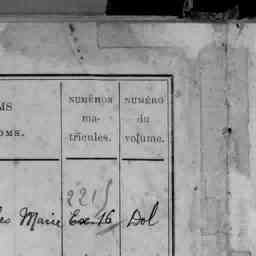 MS NUMÉROS NUMÉRO
ma- du
OMS. tricules. volume.
221
les Marie Ex. 16 Dol